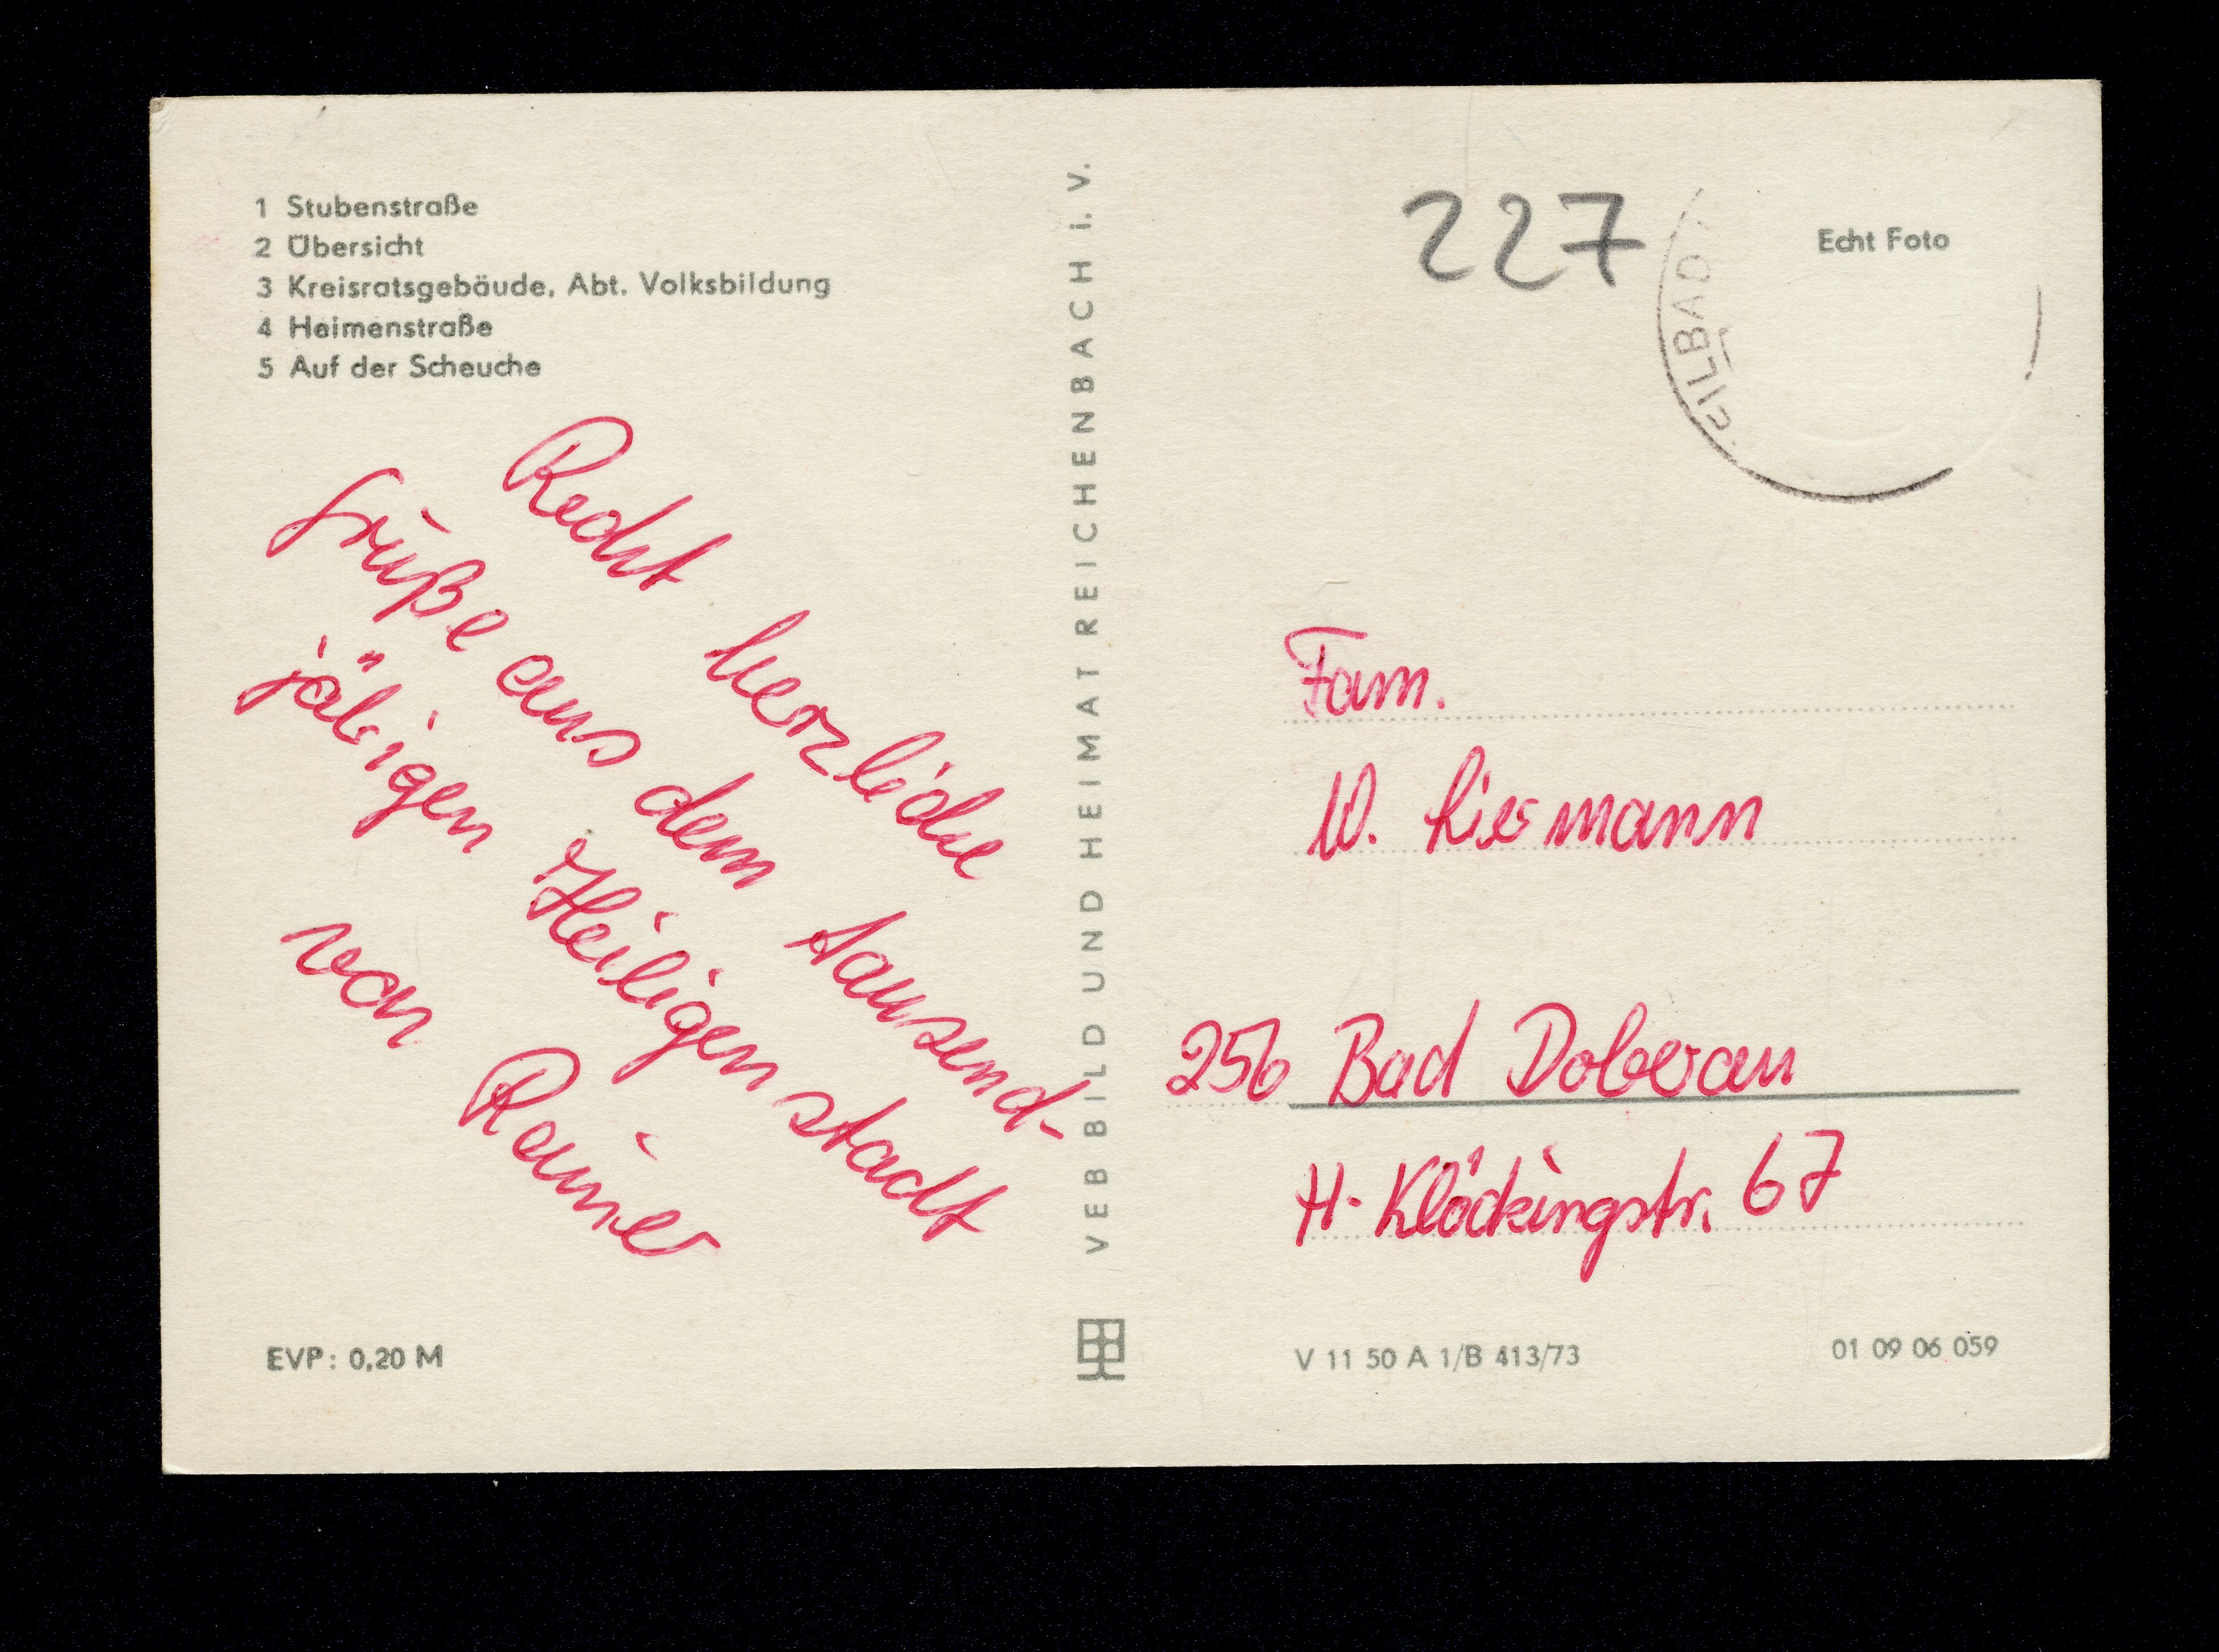 1 Stubenstraße
2 Übersicht
3 Kreisratsgebäude, Abt. Volksbildung
4 Heimenstraße
5 Auf der Scheuche
Recht herzliche
Grüße aus dem tausend-
jährigen Heiligenstadt
von Rainer
EVP: 0,20 M
VEB BILD UND HEIMAT REICHENBACH I. V.
227
EILBAD
Echt Foto
Fam.
W. Liermann
256 Bad Doberan
H-Klöckingstr. 67
V 11 50 A 1/B 413/73
01 09 06 059